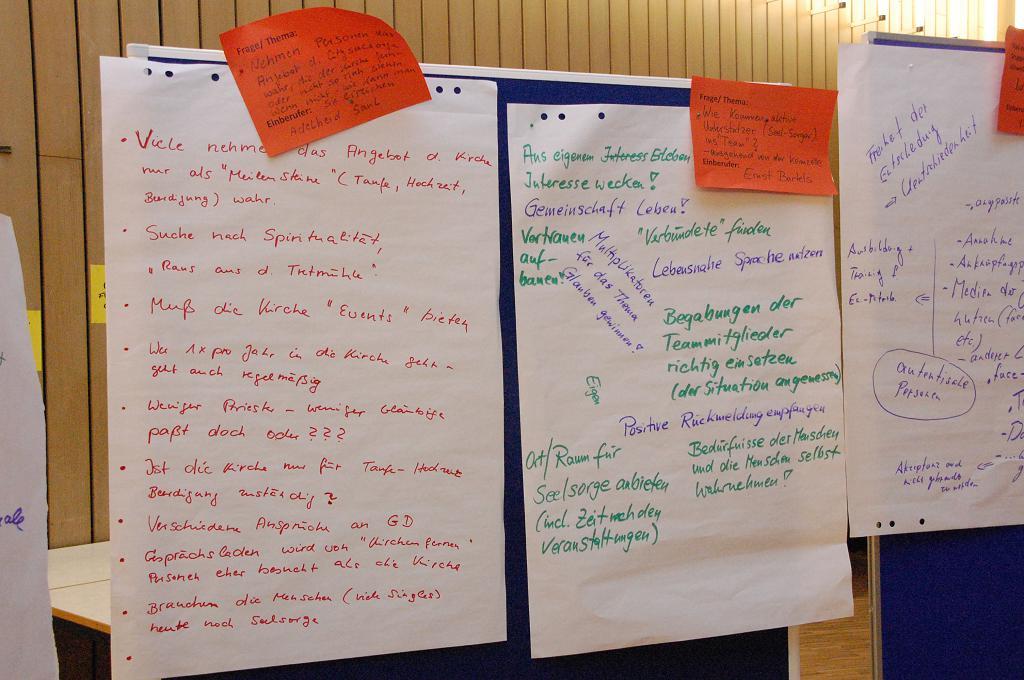 Frage/Thema:
• Nehmen Personen das
Angebot d. Citypastorale
wahr, die der Kirche fern
oder nicht so nah stehen
wenn nicht, wie kann man
Einberufer: Sie erreichen
Adelheid Sanl
• Viele nehmen das Angebot d. Kirche
nur als "Meilensteine" (Taufe, Hochzeit,
Beerdigung) wahr.
• Suche nach Spiritualität,
"Raus aus d. Tretmühle"
• Muß die Kirche "Events" bieten
• Wer 1x pro Jahr in die Kirche geht -
geht auch regelmäßig
• Weniger Priester - weniger Gläubige
paßt doch oder ???
• Ist die Kirche nur für Taufe - Hochzeit
Beerdigung zuständig?
• Verschiedene Ansprüche an GD
• Gesprächsladen wird von "Kirchenfernen"
Personen eher besucht als die Kirche
• Brauchen die Menschen (viele Singles)
heute noch Seelsorge
Frage/Thema:
Wie kommen aktive
Unterstützer (Seel-Sorger)
ins "Team"?
- ausgehend von der
Einberufer:
Ernst Bartels
Aus eigenem Interess Erleben
Interesse wecken!
Gemeinschaft Leben!
Vertrauen
auf-
bauen!
"Verbündete" finden
Multiplikatoren
für das Thema
Glauben gewinnen!
Lebensnahe Sprache nutzen
Begabungen der
Teammitglieder
richtig einsetzen
(der Situation angemessen)
Eigen
Positive Rückmeldung empfangen
Ort/Raum für
Seelsorge anbieten
(incl. Zeit nach den
Veranstaltungen)
Bedürfnisse der Menschen
und die Menschen selbst
wahrnehmen!
Freiheit der
Entscheidung
Unterschiedenheit
- angepasste
Ausbildung +
Training f
- Annahme
- Anknüpfungsp
- Medien der
nutzen (face
etc)
- anderer
"face-
authentische
Personen
Akzeptanz und
nicht gebraucht
zu werden
ale